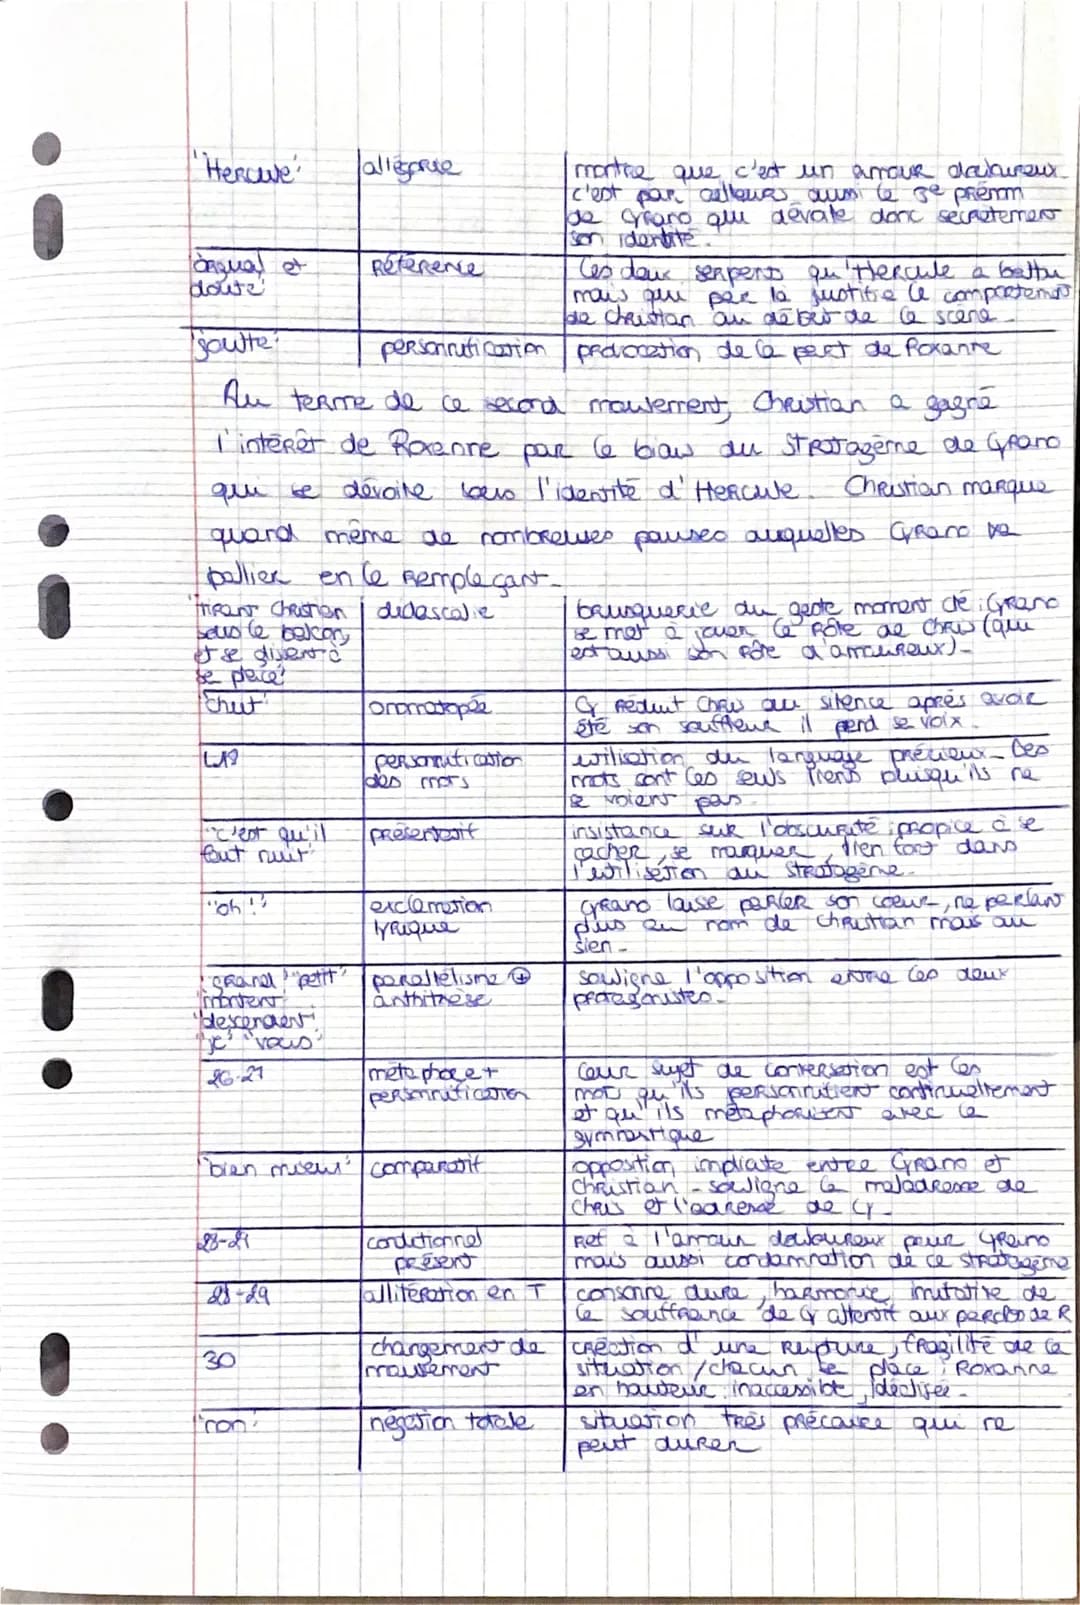 "Hercule"
allégorie
montre que c'est un amour douloureux
c'est par ailleurs aussi le 3e prénom
de Cyrano qui dévoile donc secrètement
son identité.
orgueil et
doute"
Référence
les deux serpents qu'Hercule a battu
mais qui par là justifie le comportement
de Christian au début de la scène.
"goutte"
personnification
provocation de la part de Roxanne
Au terme de ce second mouvement, Christian a gagné
l'intérêt de Roxanne par le biais du stratagème de Cyrano
qui se dévoile sous l'identité d'Hercule. Christian marque
quand même de nombreuses pauses auquelles Cyrano va
pallier en le remplaçant.
"Tirant Christian
sous le balcon,
et se glissant à
sa place"
didascalie
brusquerie du geste moment clé : Cyrano
se met à jouer le rôle de Chris (qui
est aussi son rôle d'amoureux).
"Chut"
onomatopée
Cy réduit Chris au silence après avoir
été son souffleur il perd sa voix.
L18
personnification
des mots
utilisation du language précieux. Les
mots sont les seuls liens puisqu'ils ne
se voient pas.
"c'est qu'il
fait nuit"
présentatif
insistance sur l'obscurité : propice à se
cacher, se masquer, lien fort dans
l'utilisation du stratagème.
"oh !"
exclamation
lyrique
Cyrano laisse parler son coeur, ne parlant
plus au nom de Christian mais au
sien.
"grand" "petit"
"montent"
"descendent"
"je" "vous"
parallélisme ⊕
anthithèse
souligne l'opposition entre les deux
protagonistes.
26-27
métaphore +
personnification
leur sujet de conversation est les
mots qu'ils personnifient continuellement
et qu'ils métaphorisent avec la
gymnastique
"bien mieux"
comparatif
opposition implicite entre Cyrano et
Christian - souligne la maladresse de
Chris et l'adresse de Cy.
28-29
conditionnel
présent
Ref à l'amour douloureux pour Cyrano
mais aussi condamnation de ce stratagème
28-29
allitération en T
consonne dure, harmonie imitative de
la souffrance de Cy attentif aux paroles de R
30
changement de
mouvement
création d'une rupture, fragilité de la
situation / chacun sa place ; Roxanne
en hauteur : inaccessible, idéalisée.
"non"
négation totale
situation très précaire qui ne
peut durer